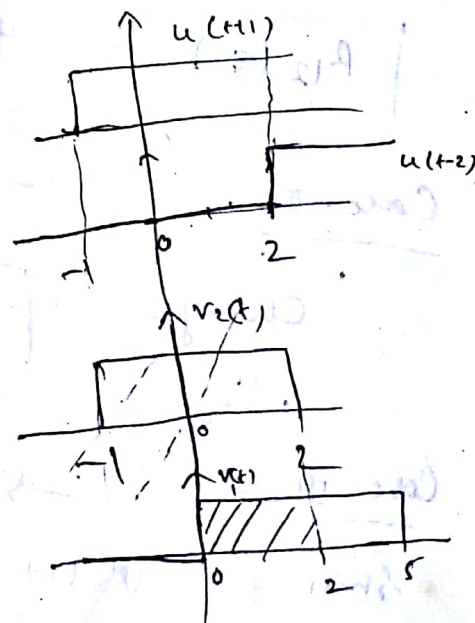 u(t+1)
u(t-2)
0 2
-1
v2(t)
0
-1 2
v(t)
0 2 5